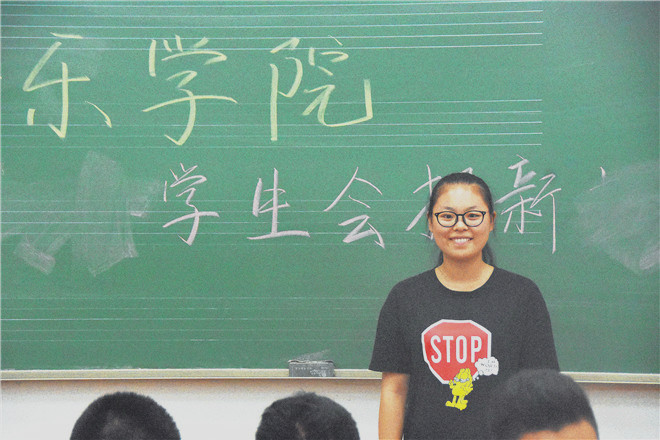 乐学院
学生会招新
STOP